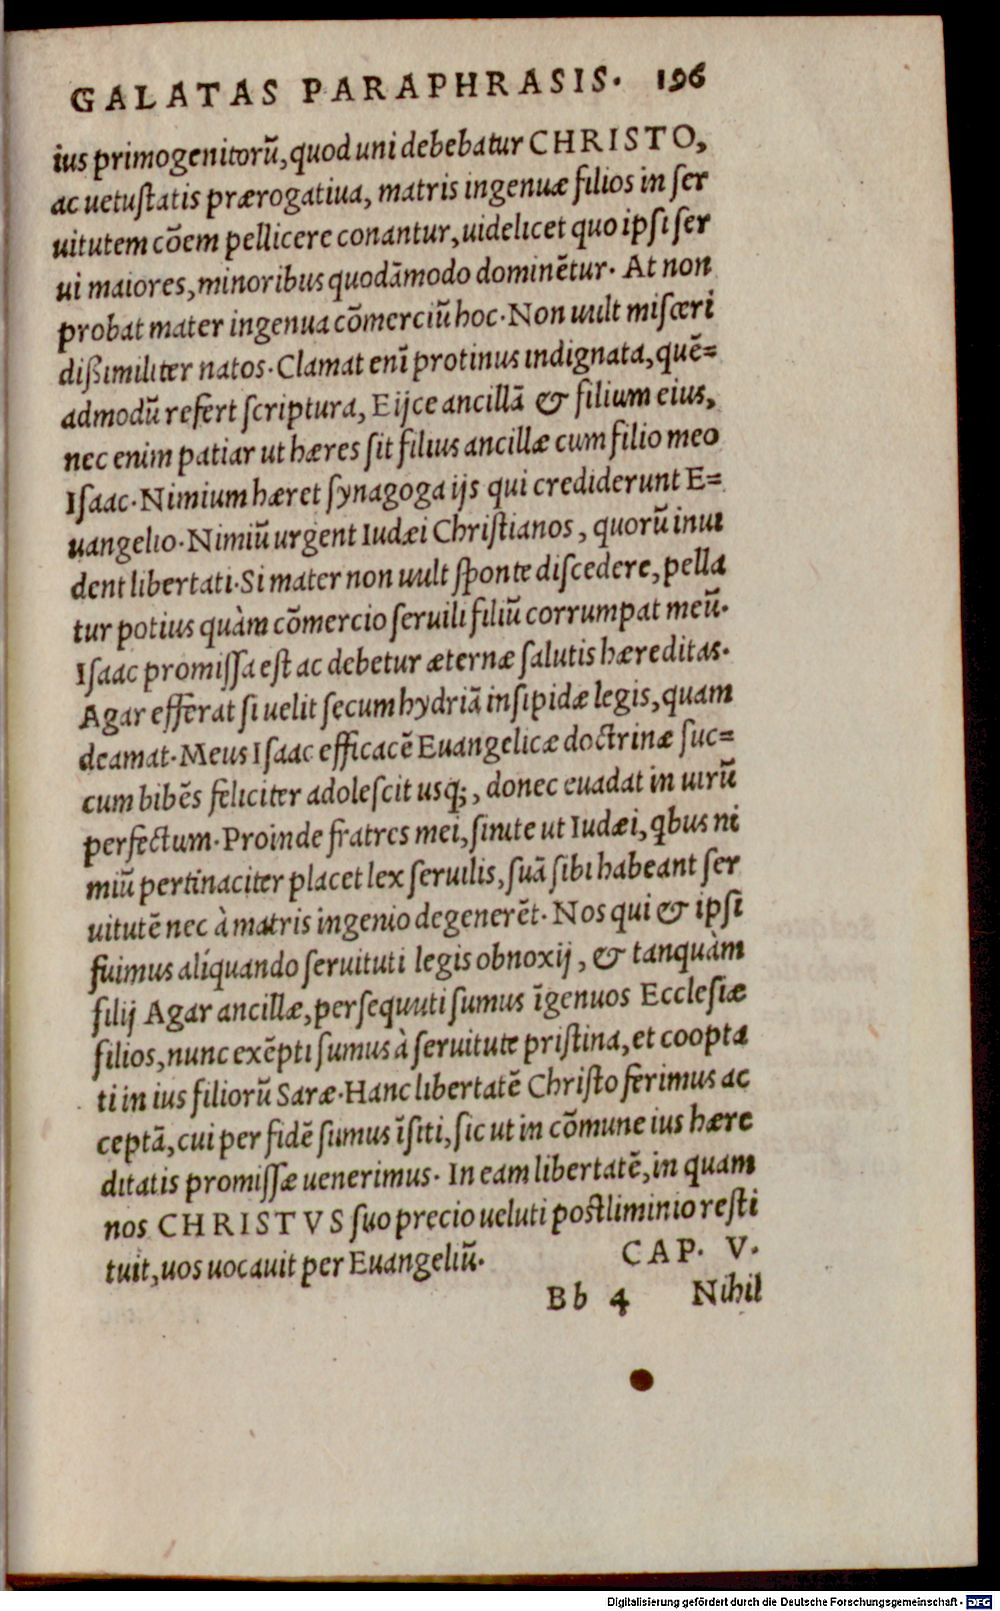 GALATAS PARAPHRASIS. 196
ius primogenitorũ, quod uni debebatur CHRISTO,
ac uetuſtatis prærogatiua, matris ingenuæ filios in ſer
uitutem cõem pellicere conantur, uidelicet quo ipſi ſer
ui maiores, minoribus quodãmodo dominẽtur. At non
probat mater ingenua cõmerciũ hoc. Non uult miſceri
dißimiliter natos. Clamat enĩ protinus indignata, quẽ=
admodũ refert ſcriptura, Eijce ancillã & filium eius,
nec enim patiar ut hæres ſit filius ancillæ cum filio meo
Iſaac. Nimium hæret ſynagoga ijs qui crediderunt E=
uangelio. Nimiũ urgent Iudæi Chriſtianos, quorũ inui
dent libertati. Si mater non uult ſponte diſcedere, pella
tur potius quàm cõmercio ſeruili filiũ corrumpat meũ.
Iſaac promiſſa eſt ac debetur æternæ ſalutis hæreditas.
Agar efferat ſi uelit ſecum hydriã inſipidæ legis, quam
deamat. Meus Iſaac efficacẽ Euangelicæ doctrinæ ſuc=
cum bibẽs feliciter adoleſcit uſq;, donec euadat in uirũ
perfectum. Proinde fratres mei, ſinite ut Iudæi, qbus ni
miũ pertinaciter placet lex ſeruilis, ſuã ſibi habeant ſer
uitutẽ nec à matris ingenio degenerẽt. Nos qui & ipſi
fuimus aliquando ſeruituti legis obnoxij, & tanquàm
filij Agar ancillæ, perſequuti ſumus ĩgenuos Eccleſiæ
filios, nunc exẽpti ſumus à ſeruitute priſtina, et coopta
ti in ius filiorũ Saræ. Hanc libertatẽ Chriſto ferimus ac
ceptã, cui per fidẽ ſumus ĩſiti, ſic ut in cõmune ius hære
ditatis promiſſæ uenerimus. In eam libertatẽ, in quam
nos CHRISTVS ſuo precio ueluti poſtliminio reſti
tuit, uos uocauit per Euangeliũ. CAP. V.
Bb 4 Nihil
Digitalisierung gefördert durch die Deutsche Forschungsgemeinschaft - DFG